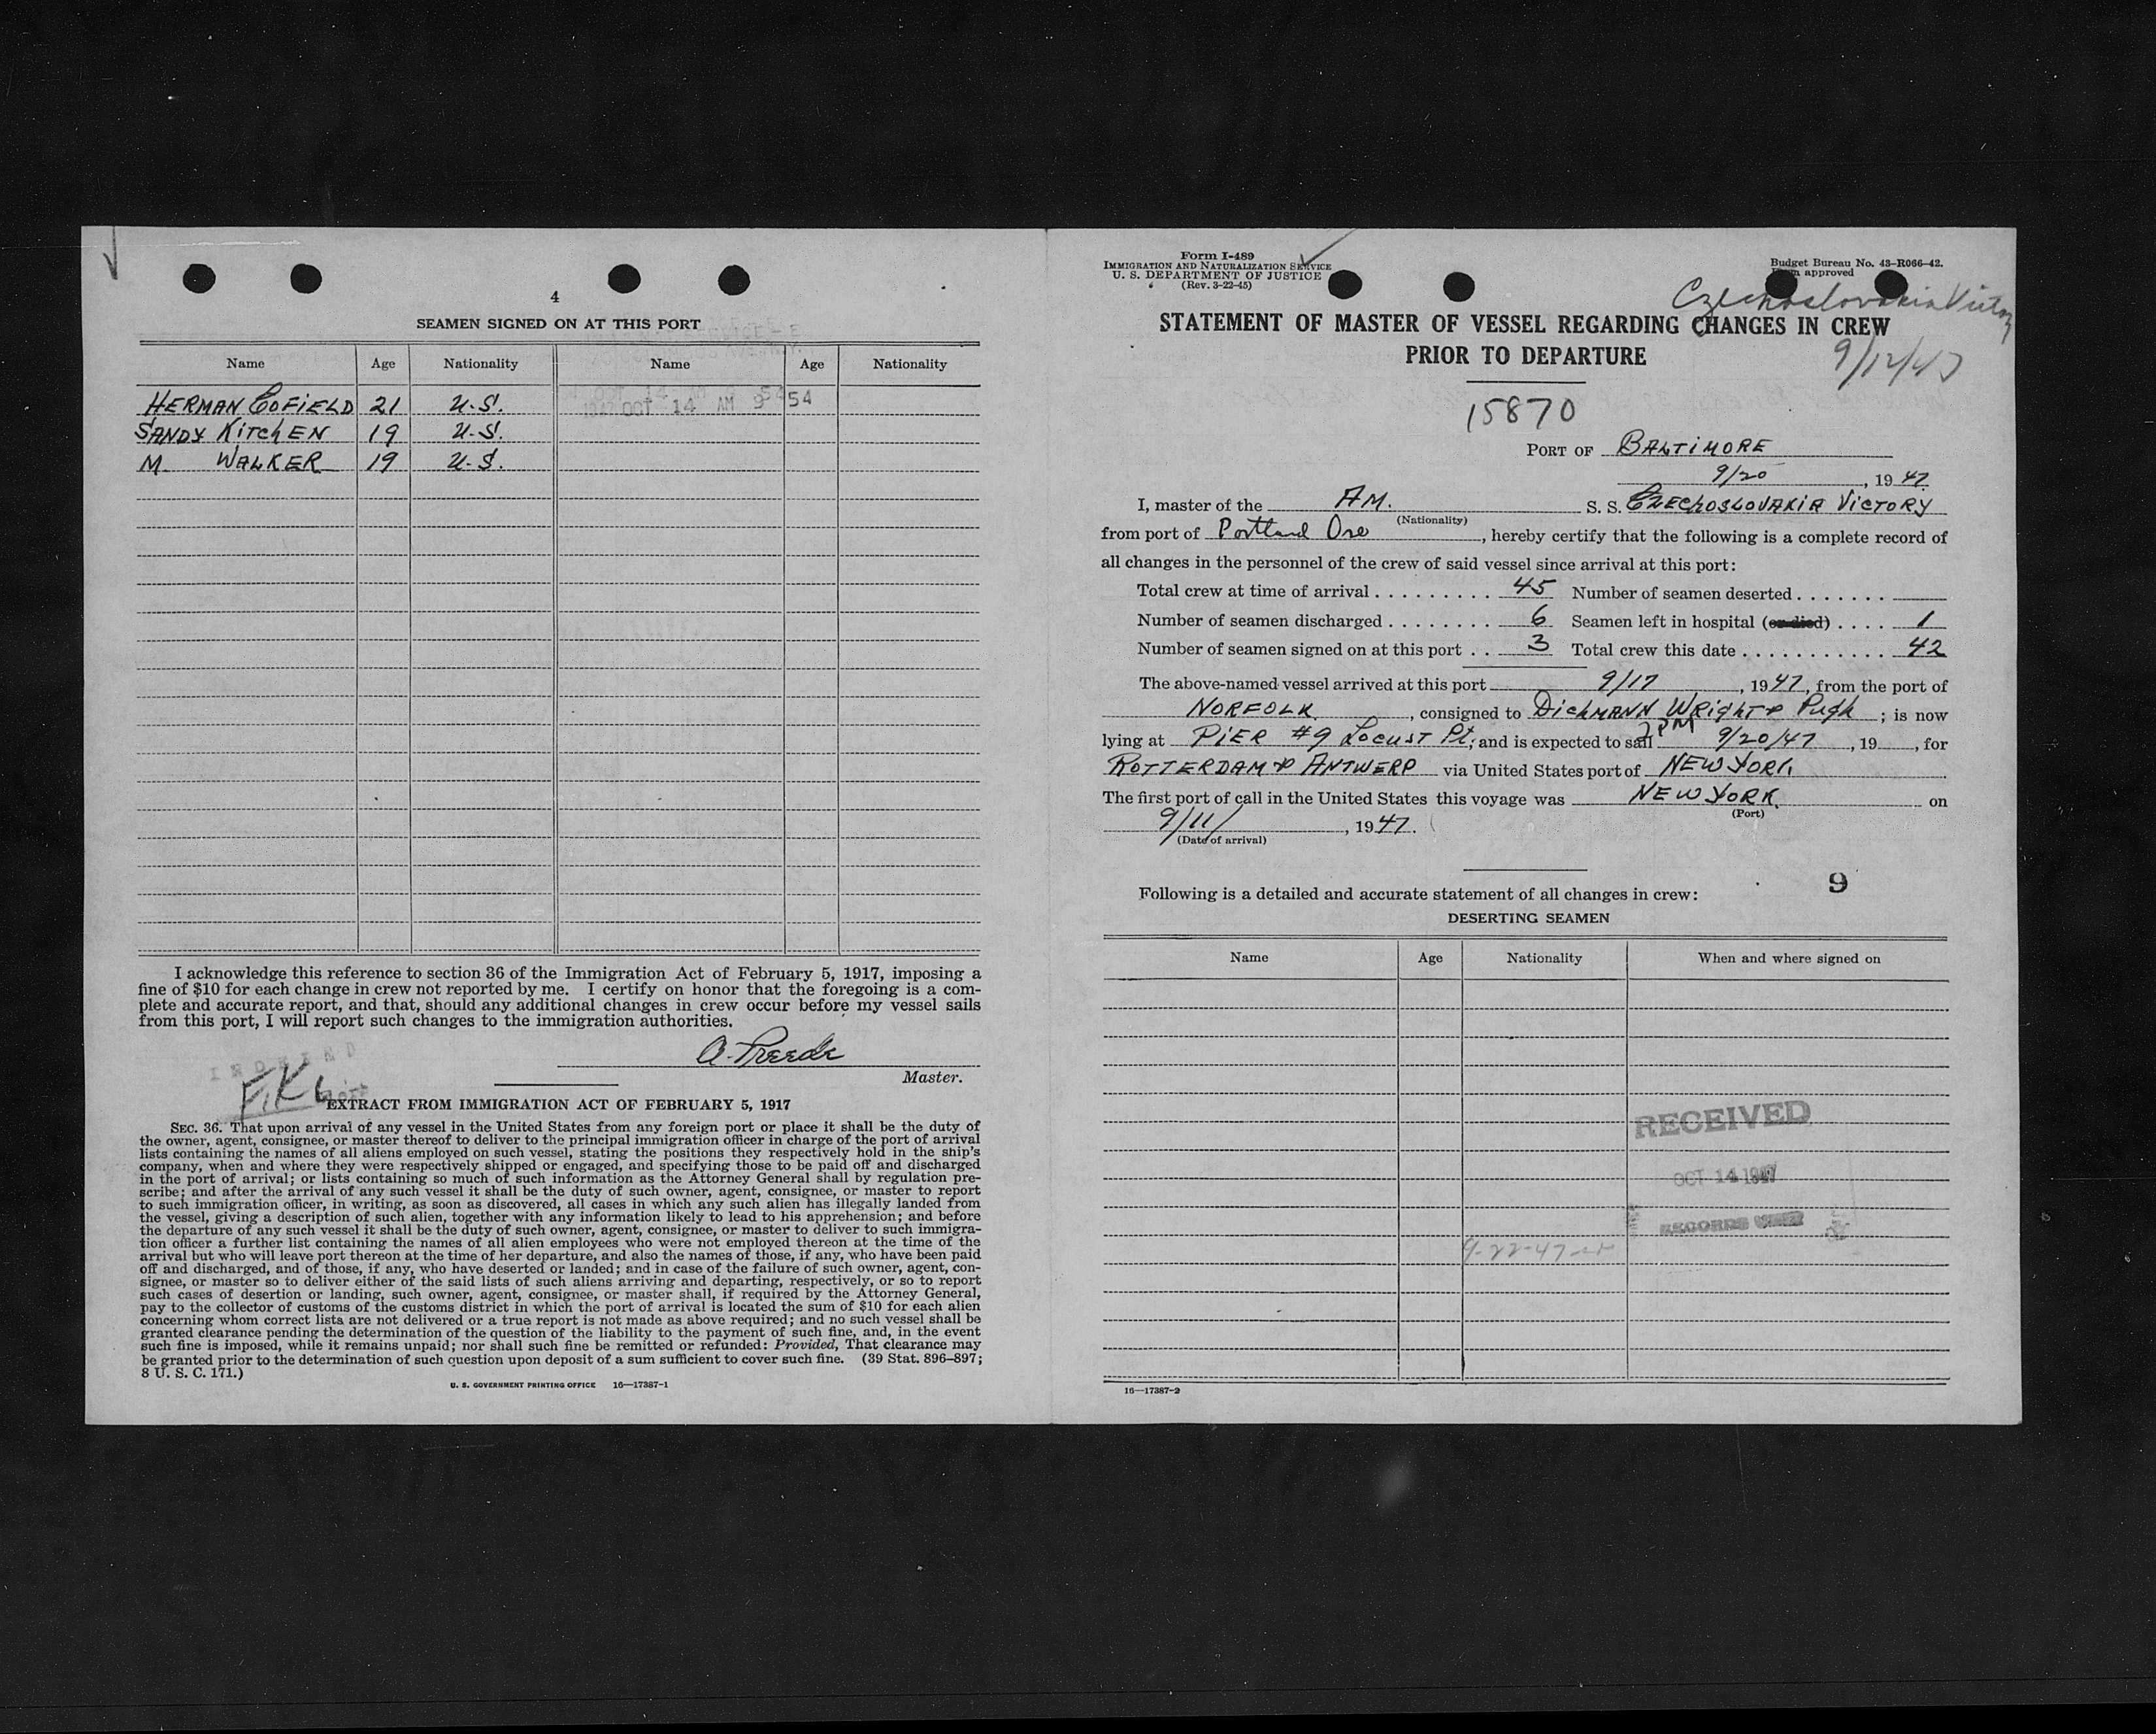 4
SEAMEN SIGNED ON AT THIS PORT
Name Age Nationality Name Age Nationality
OCT 14 AM 9 54
HERMAN COFIELD 21 U.S.
SANDY KITCHEN 19 U.S.
M. WALKER 19 U.S.
I acknowledge this reference to section 36 of the Immigration Act of February 5, 1917, imposing a
fine of $10 for each change in crew not reported by me. I certify on honor that the foregoing is a com-
plete and accurate report, and that, should any additional changes in crew occur before my vessel sails
from this port, I will report such changes to the immigration authorities.
Master.
EXTRACT FROM IMMIGRATION ACT OF FEBRUARY 5, 1917
SEC. 36. That upon arrival of any vessel in the United States from any foreign port or place it shall be the duty of
the owner, agent, consignee, or master thereof to deliver to the principal immigration officer in charge of the port of arrival
lists containing the names of all aliens employed on such vessel, stating the positions they respectively hold in the ship's
company, when and where they were respectively shipped or engaged, and specifying those to be paid off and discharged
in the port of arrival; or lists containing so much of such information as the Attorney General shall by regulation pre-
scribe; and after the arrival of any such vessel it shall be the duty of such owner, agent, consignee, or master to report
to such immigration officer, in writing, as soon as discovered, all cases in which any such alien has illegally landed from
the vessel, giving a description of such alien, together with any information likely to lead to his apprehension; and before
the departure of any such vessel it shall be the duty of such owner, agent, consignee, or master to deliver to such immigra-
tion officer a further list containing the names of all alien employees who were not employed thereon at the time of the
arrival but who will leave port thereon at the time of her departure, and also the names of those, if any, who have been paid
off and discharged, and of those, if any, who have deserted or landed; and in case of the failure of such owner, agent, con-
signee, or master so to deliver either of the said lists of such aliens arriving and departing, respectively, or so to report
such cases of desertion or landing, such owner, agent, consignee, or master shall, if required by the Attorney General,
pay to the collector of customs of the customs district in which the port of arrival is located the sum of $10 for each alien
concerning whom correct lists are not delivered or a true report is not made as above required; and no such vessel shall be
granted clearance pending the determination of the question of the liability to the payment of such fine, and, in the event
such fine is imposed, while it remains unpaid; nor shall such fine be remitted or refunded: Provided, That clearance may
be granted prior to the determination of such question upon deposit of a sum sufficient to cover such fine. (39 Stat. 896–897;
8 U. S. C. 171.)
U. S. GOVERNMENT PRINTING OFFICE 16—17387-1
Form I-489
IMMIGRATION AND NATURALIZATION SERVICE
U. S. DEPARTMENT OF JUSTICE
(Rev. 3-22-45)
Budget Bureau No. 43-R066-42.
approved
Czechoslovakia Victory
STATEMENT OF MASTER OF VESSEL REGARDING CHANGES IN CREW
PRIOR TO DEPARTURE
9/12/47
15870
PORT OF BALTIMORE
9/20, 1947
I, master of the AM. S. S. CZECHOSLOVAKIA VICTORY
(Nationality)
from port of Portland Ore, hereby certify that the following is a complete record of
all changes in the personnel of the crew of said vessel since arrival at this port:
Total crew at time of arrival . . . . . . . . . 45 Number of seamen deserted . . . . . . .
Number of seamen discharged . . . . . . . . 6 Seamen left in hospital (or died) . . . . 1
Number of seamen signed on at this port . . 3 Total crew this date . . . . . . . . . . . 42
The above-named vessel arrived at this port 9/17, 1947, from the port of
NORFOLK, consigned to DICHMANN WRIGHT & PUGH; is now
lying at PIER #9 LOCUST Pt; and is expected to sail 2 PM 9/20/47, 19 , for
ROTTERDAM & ANTWERP via United States port of NEW YORK
The first port of call in the United States this voyage was NEW YORK on
(Port)
9/11/, 1947.
(Date of arrival)
9
Following is a detailed and accurate statement of all changes in crew:
DESERTING SEAMEN
Name Age Nationality When and where signed on
RECEIVED
OCT 14 1947
RECORDS UNIT
9-22-47
16—17387-2